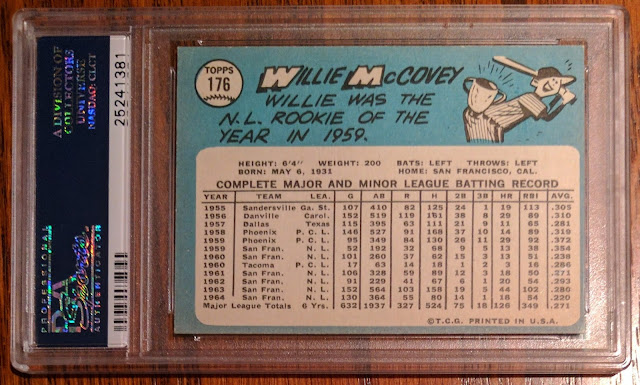 A DIVISION OF
COLLECTORS
UNIVERSE
NASDAQ: CLCT
25241381
PROFESSIONAL
PSA
Sports
AUTHENTICATOR
TOPPS
176
WILLIE McCOVEY
WILLIE WAS THE
N.L. ROOKIE OF THE
YEAR IN 1959.
HEIGHT: 6'4" WEIGHT: 200 BATS: LEFT THROWS: LEFT
BORN: MAY 6, 1931 HOME: SAN FRANCISCO, CAL.
COMPLETE MAJOR AND MINOR LEAGUE BATTING RECORD
YEAR TEAM LEA. G AB R H 2B 3B HR RBI AVG.
1955 Sandersville Ga. St. 107 410 82 125 24 1 19 113 .305
1956 Danville Carol. 152 519 119 161 38 8 29 89 .310
1957 Dallas Texas 115 395 63 111 21 9 11 65 .281
1958 Phoenix P.C.L. 146 527 91 168 37 10 14 89 .319
1959 Phoenix P.C.L. 95 349 84 130 26 11 29 92 .372
1959 San Fran. N.L. 52 192 32 68 9 5 13 38 .354
1960 San Fran. N.L. 101 260 37 62 15 3 13 51 .238
1960 Tacoma P.C.L. 17 63 14 18 1 2 3 16 .286
1961 San Fran. N.L. 106 328 59 89 12 3 18 50 .271
1962 San Fran. N.L. 91 229 41 67 6 1 20 54 .293
1963 San Fran. N.L. 152 564 103 158 19 5 44 102 .280
1964 San Fran. N.L. 130 364 55 80 14 1 18 54 .220
Major League Totals 6 Yrs. 632 1937 327 524 75 18 126 349 .271
©T.C.G. PRINTED IN U.S.A.